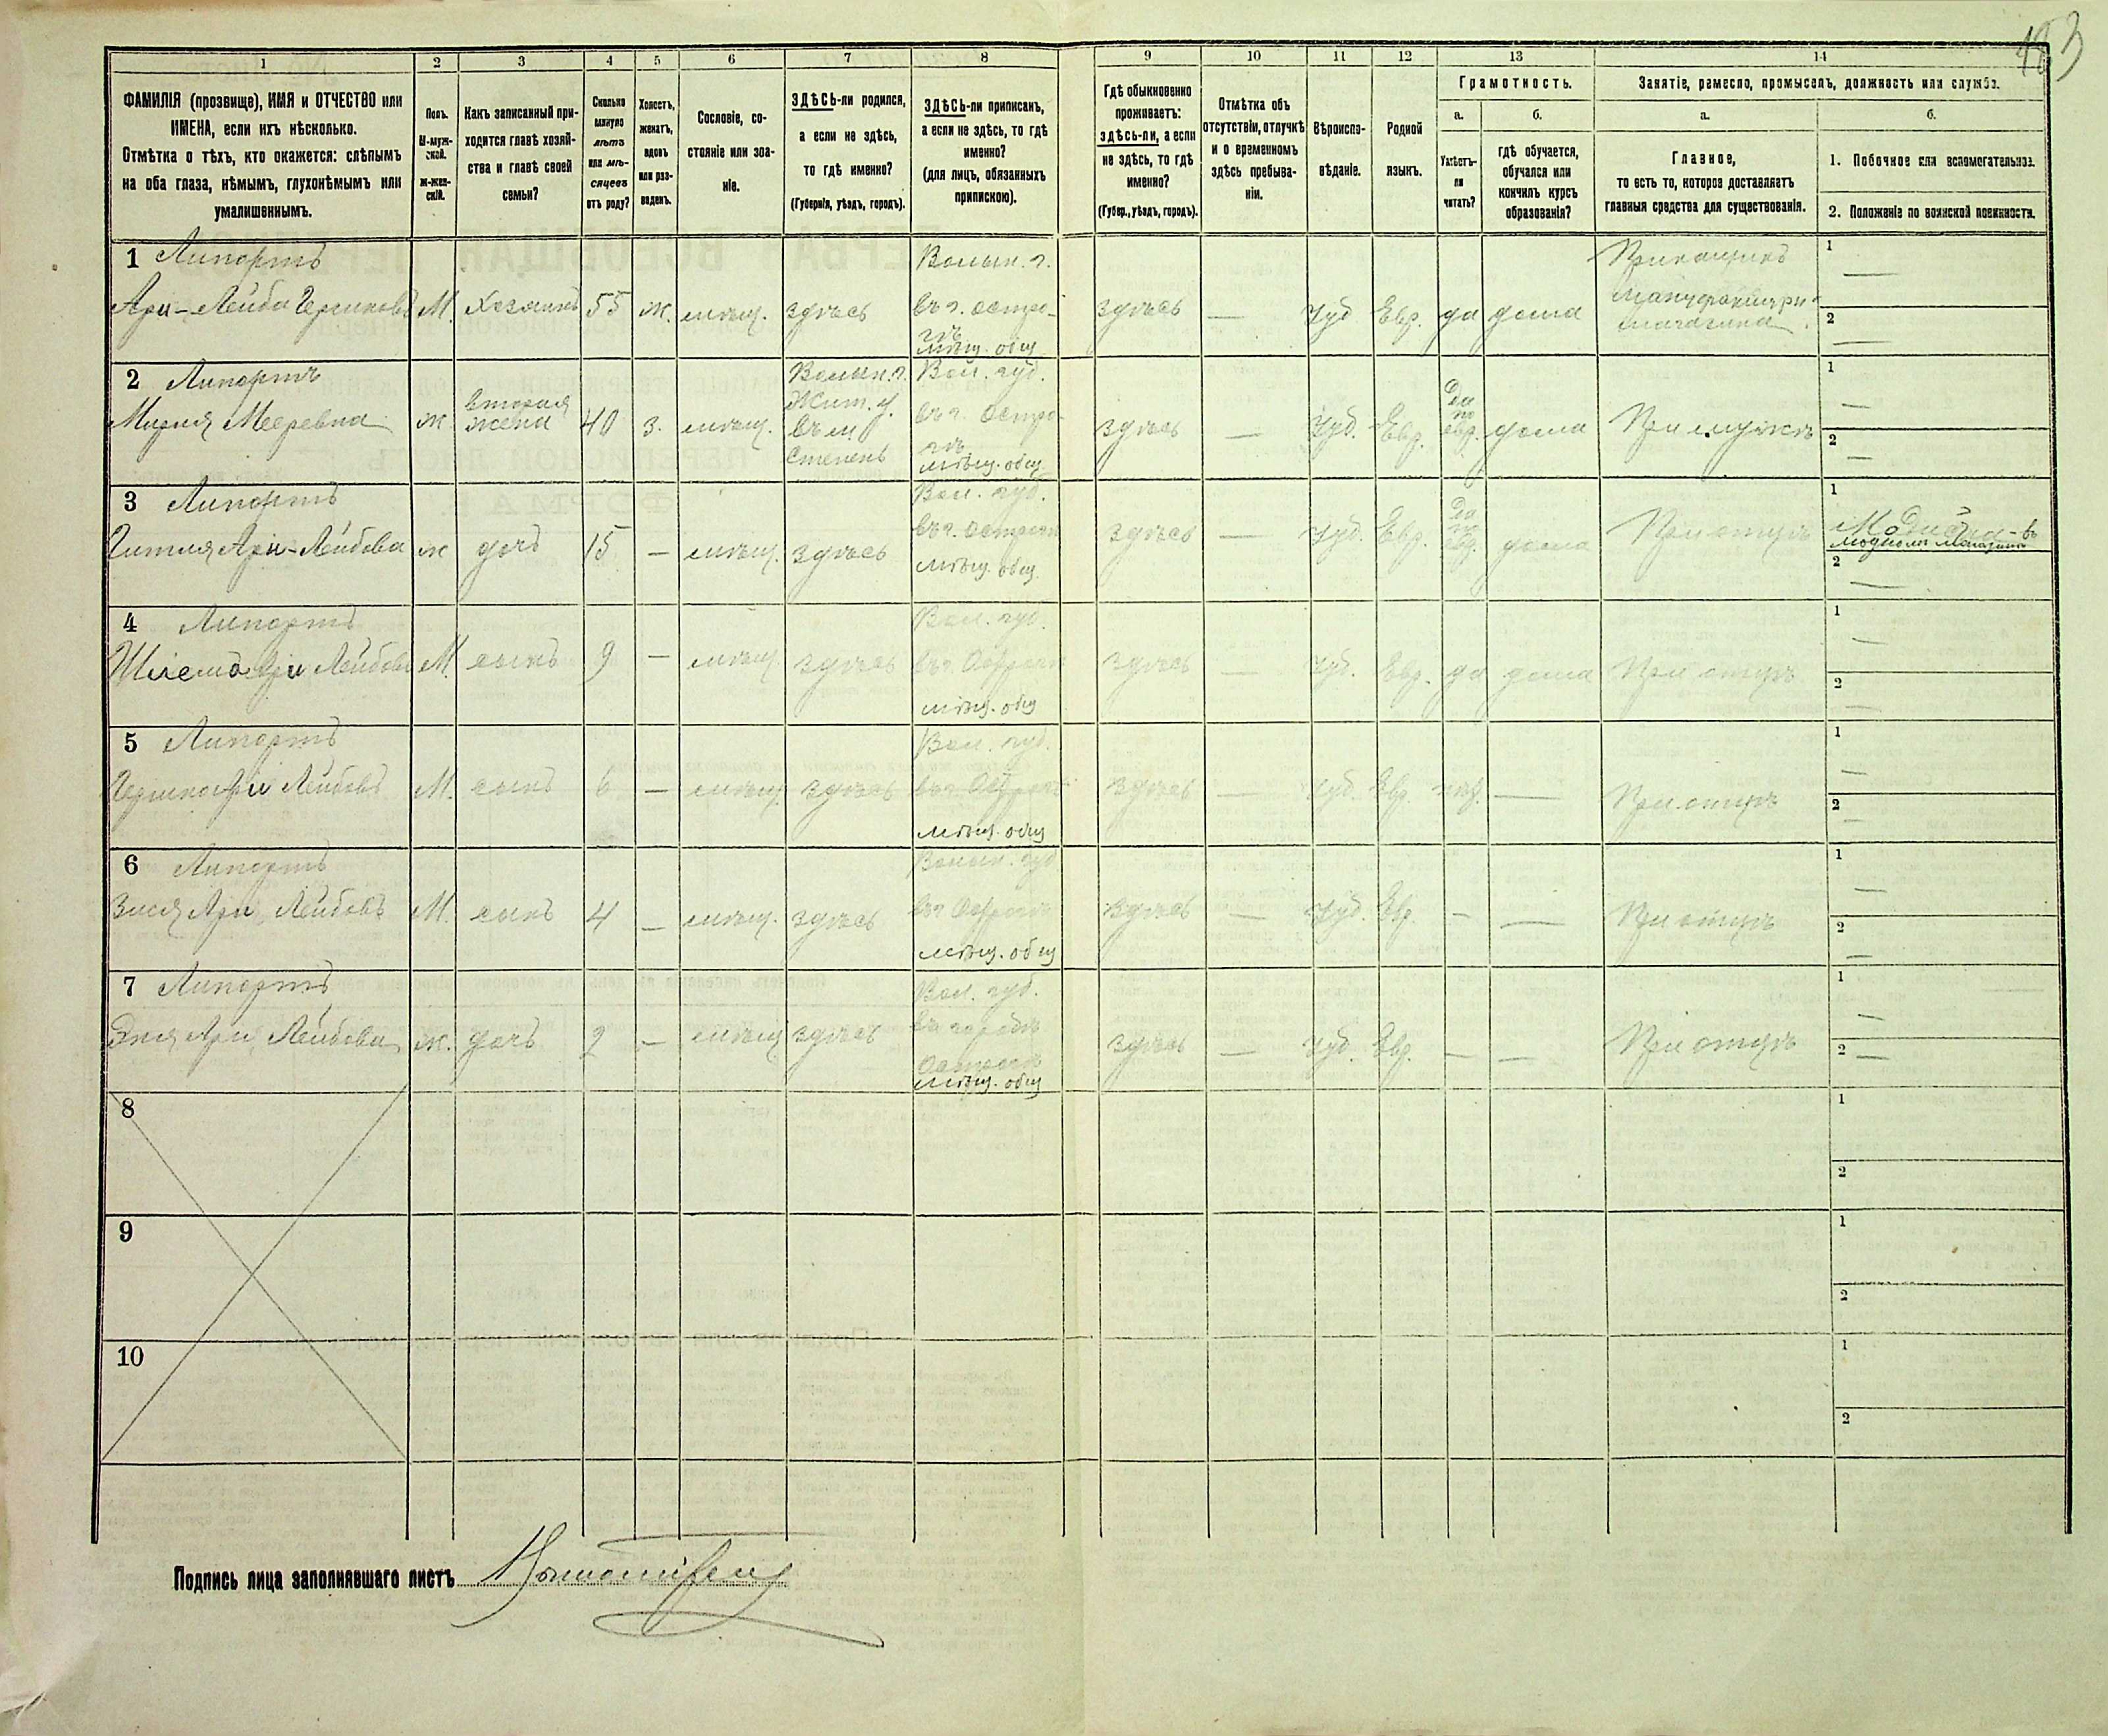 183
1 2 3 4 5 6 7 8 9 10 11 12 13 14
ФАМИЛІЯ (прозвище), ИМЯ и ОТЧЕСТВО или
ИМЕНА, если ихъ нѣсколько.
Отмѣтка о тѣхъ, кто окажется: слѣпымъ
на оба глаза, нѣмымъ, глухонѣмымъ или
умалишеннымъ.
Полъ.
М-муж-
ской.
Ж-жен-
скій.
Какъ записанный при-
ходится главѣ хозяй-
ства и главѣ своей
семьи?
Сколько
минуло
лѣтъ
или мѣ-
сяцевъ
отъ роду?
Холостъ,
женатъ,
вдовъ
или раз-
веденъ.
Сословіе, со-
стояніе или зва-
ніе.
ЗДѢСЬ-ли родился,
а если не здѣсь,
то гдѣ именно?
(Губернія, уѣздъ, городъ).
ЗДѢСЬ-ли приписанъ,
а если не здѣсь, то гдѣ
именно?
(для лицъ, обязанныхъ
припискою).
Гдѣ обыкновенно
проживаетъ:
здѣсь-ли, а если
не здѣсь, то гдѣ
именно?
(Губер., уѣздъ, городъ).
Отмѣтка объ
отсутствіи, отлучкѣ
и о временномъ
здѣсь пребыва-
ніи.
Вѣроиспо-
вѣданіе.
Родной
языкъ.
Грамотность.
а.
Умѣетъ-
ли
читать?
б.
гдѣ обучается,
обучался или
кончилъ курсъ
образованія?
Занятіе, ремесло, промыселъ, должность или служба.
а.
Главное,
то есть то, которое доставляетъ
главныя средства для существованія.
б.
1. Побочное или вспомогательное.
2. Положеніе по воинской повинности.
1 Липортъ
Ари-Лейба Гершковъ М. Хозяинъ 55 ж. мѣщ. здѣсь
Волын. г.
въ г. Остро-
гѣ
мѣщ. общ
здѣсь — Іуд Евр. да дома
Прикащикъ
Мануфактурн.
магазина
1 —
2 —
2 Липортъ
Мирля Мееревна ж
вторая
жена
40 з. мѣщ.
Волын. г.
Жит. у.
въ м
Степень
Вол. губ.
въ г. Остро-
гѣ
мѣщ. общ
здѣсь — Іуд. Евр.
Да
по
евр.
дома При мужѣ
1 —
2 —
3 Липортъ
Гитля Ари-Лейбова ж дочь 15 — мѣщ. здѣсь
Вол. губ.
въ г. Острогѣ
мѣщ. общ.
здѣсь — Іуд. Евр.
Да
по
евр.
дома При отцѣ
1 Модистка - въ
модномъ магазинѣ
2 —
4 Липортъ
Шлема Ари Лейбовъ М. сынъ 9 — мѣщ. здѣсь
Вол. губ.
въ г. Острогѣ
мѣщ. общ
здѣсь — Іуд. Евр. да дома При отцѣ
1 —
2 —
5 Липортъ
Гершко Ари Лейбовъ М. сынъ 6 — мѣщ. здѣсь
Вол. губ.
въ г. Острогѣ
мѣщ. общ
здѣсь — Іуд. Евр. — При отцѣ
1 —
2 —
6 Липортъ
Зися Ари Лейбовъ М. сынъ 4 — мѣщ. здѣсь
Волын. губ
въ г. Острогѣ
мѣщ. общ
здѣсь — Іуд. Евр. — — При отцѣ
1 —
2 —
7 Липортъ
Эня Ари Лейбова ж. дочь 2 — мѣщ здѣсь
Вол. губ.
въ городѣ
Острогѣ
мѣщ. общ
здѣсь — Іуд. Евр. — — При отцѣ
1 —
2 —
8
1
2
9
1
2
10
1
2
Подпись лица заполнявшаго листъ